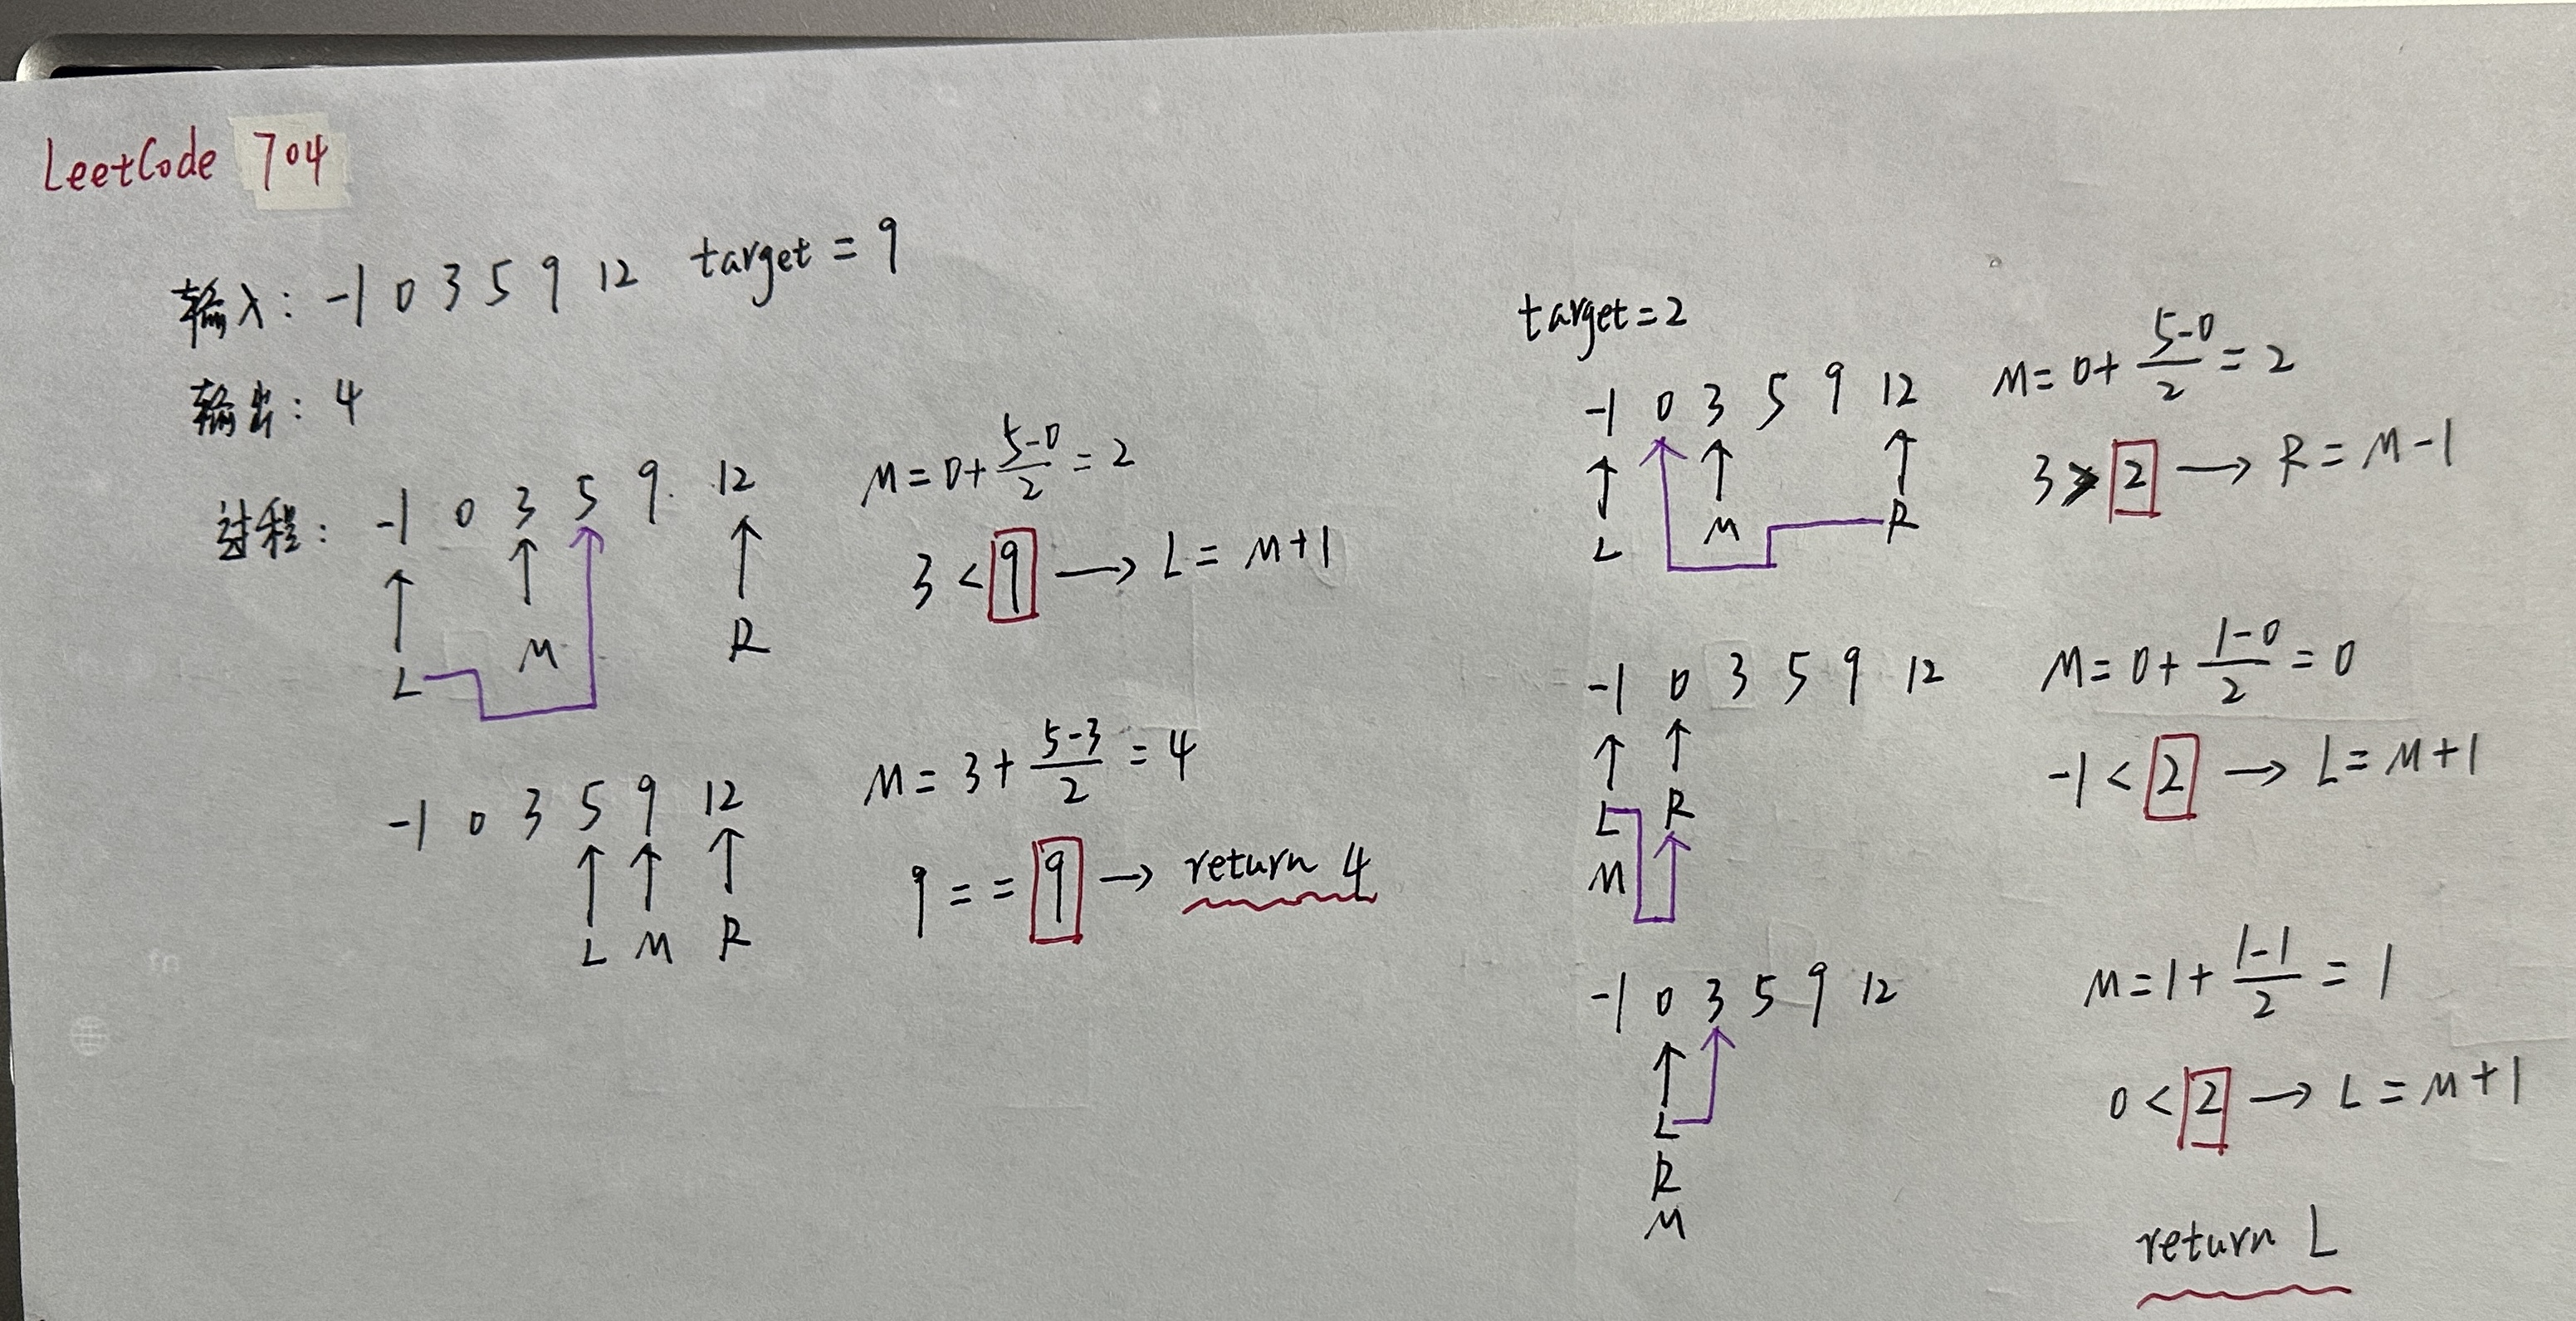 LeetCode 704
输入: -1 0 3 5 9 12 target = 9
输出: 4
过程: -1 0 3 5 9 12
L M R
M = 0 + (5-0)/2 = 2
3 < 9 → L = M+1
-1 0 3 5 9 12
L M R
M = 3 + (5-3)/2 = 4
9 == 9 → return 4
target = 2
-1 0 3 5 9 12
L M R
M = 0 + (5-0)/2 = 2
3 > 2 → R = M-1
-1 0 3 5 9 12
L R
M
M = 0 + (1-0)/2 = 0
-1 < 2 → L = M+1
-1 0 3 5 9 12
L
R
M
M = 1 + (1-1)/2 = 1
0 < 2 → L = M+1
return L